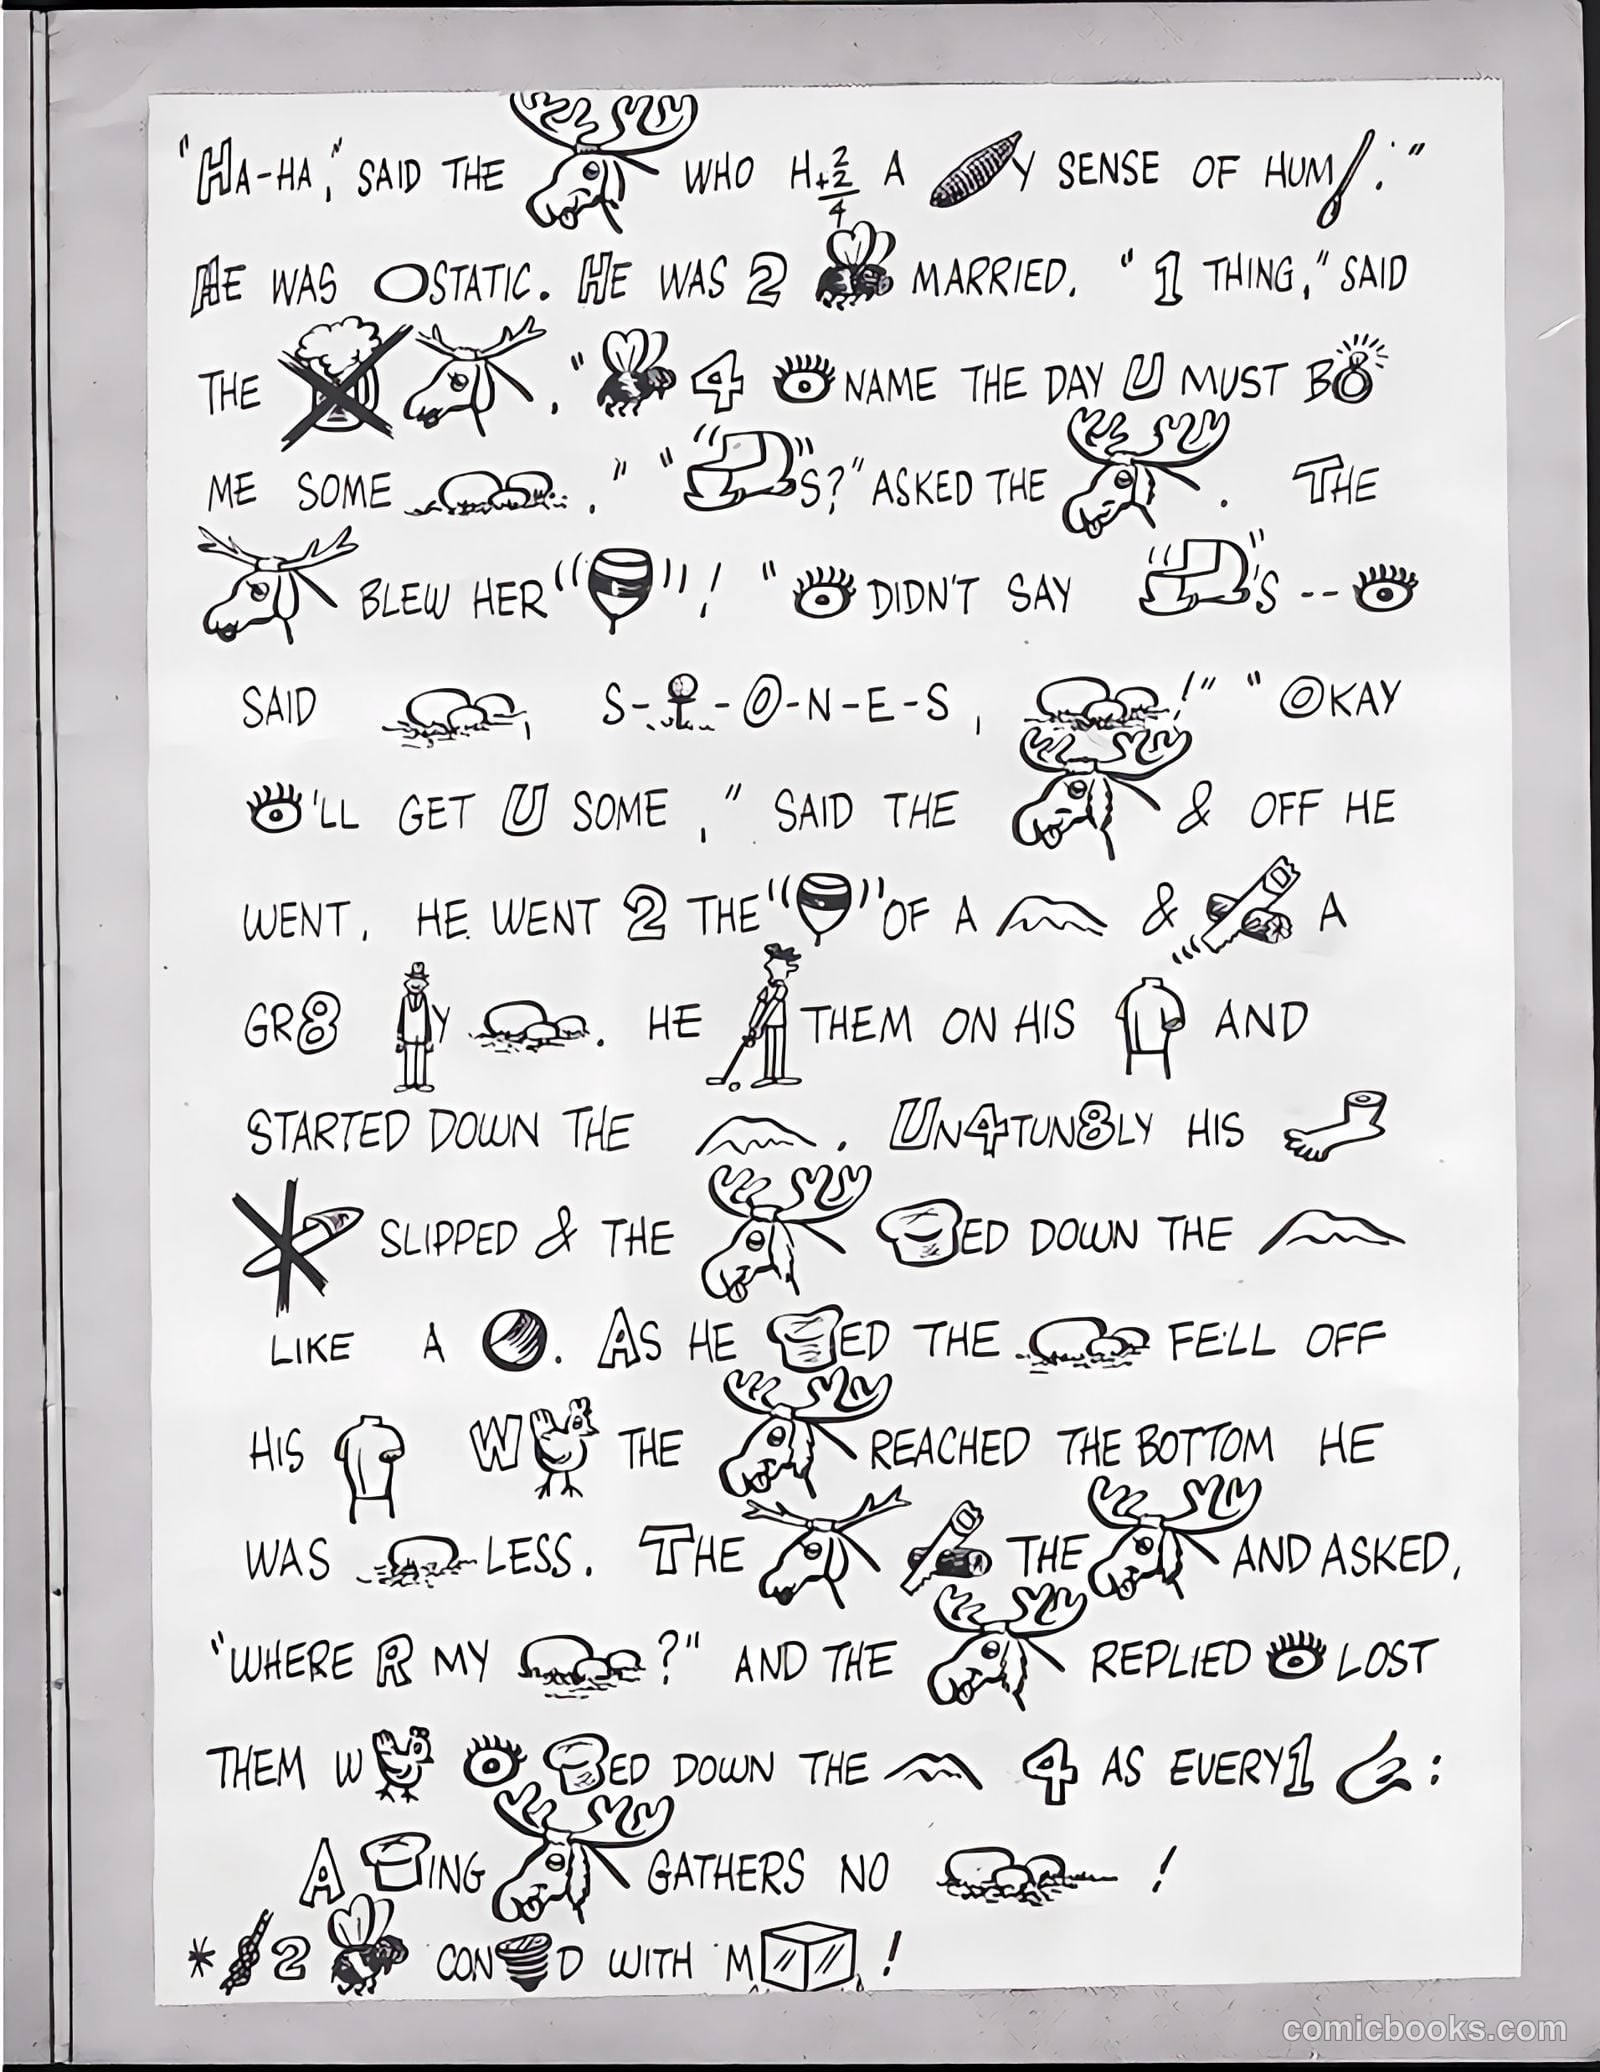 "HA-HA," SAID THE WHO H+2 2 4 A Y SENSE OF HUM."
HE WAS OSTATIC. HE WAS 2 MARRIED. "1 THING," SAID
THE , " 4 NAME THE DAY U MUST B
ME SOME ." " S?" ASKED THE . THE
BLEW HER " " ! " DIDN'T SAY 'S --
SAID , S- -O-N-E-S, !" "OKAY
'LL GET U SOME," SAID THE & OFF HE
WENT. HE WENT 2 THE " " OF A & A
GR8 Y . HE THEM ON HIS AND
STARTED DOWN THE . UN4TUN8LY HIS
SLIPPED & THE ED DOWN THE
LIKE A . AS HE ED THE FELL OFF
HIS W THE REACHED THE BOTTOM HE
WAS LESS. THE THE AND ASKED,
"WHERE R MY ?" AND THE REPLIED LOST
THEM W ED DOWN THE 4 AS EVERY1 :
A ING GATHERS NO !
* 2 CON D WITH M !
comicbooks.com